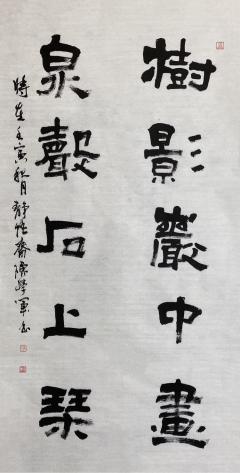 樹影巖中畫
泉聲石上琴
時在壬寅秋月静性齋陳學軍書